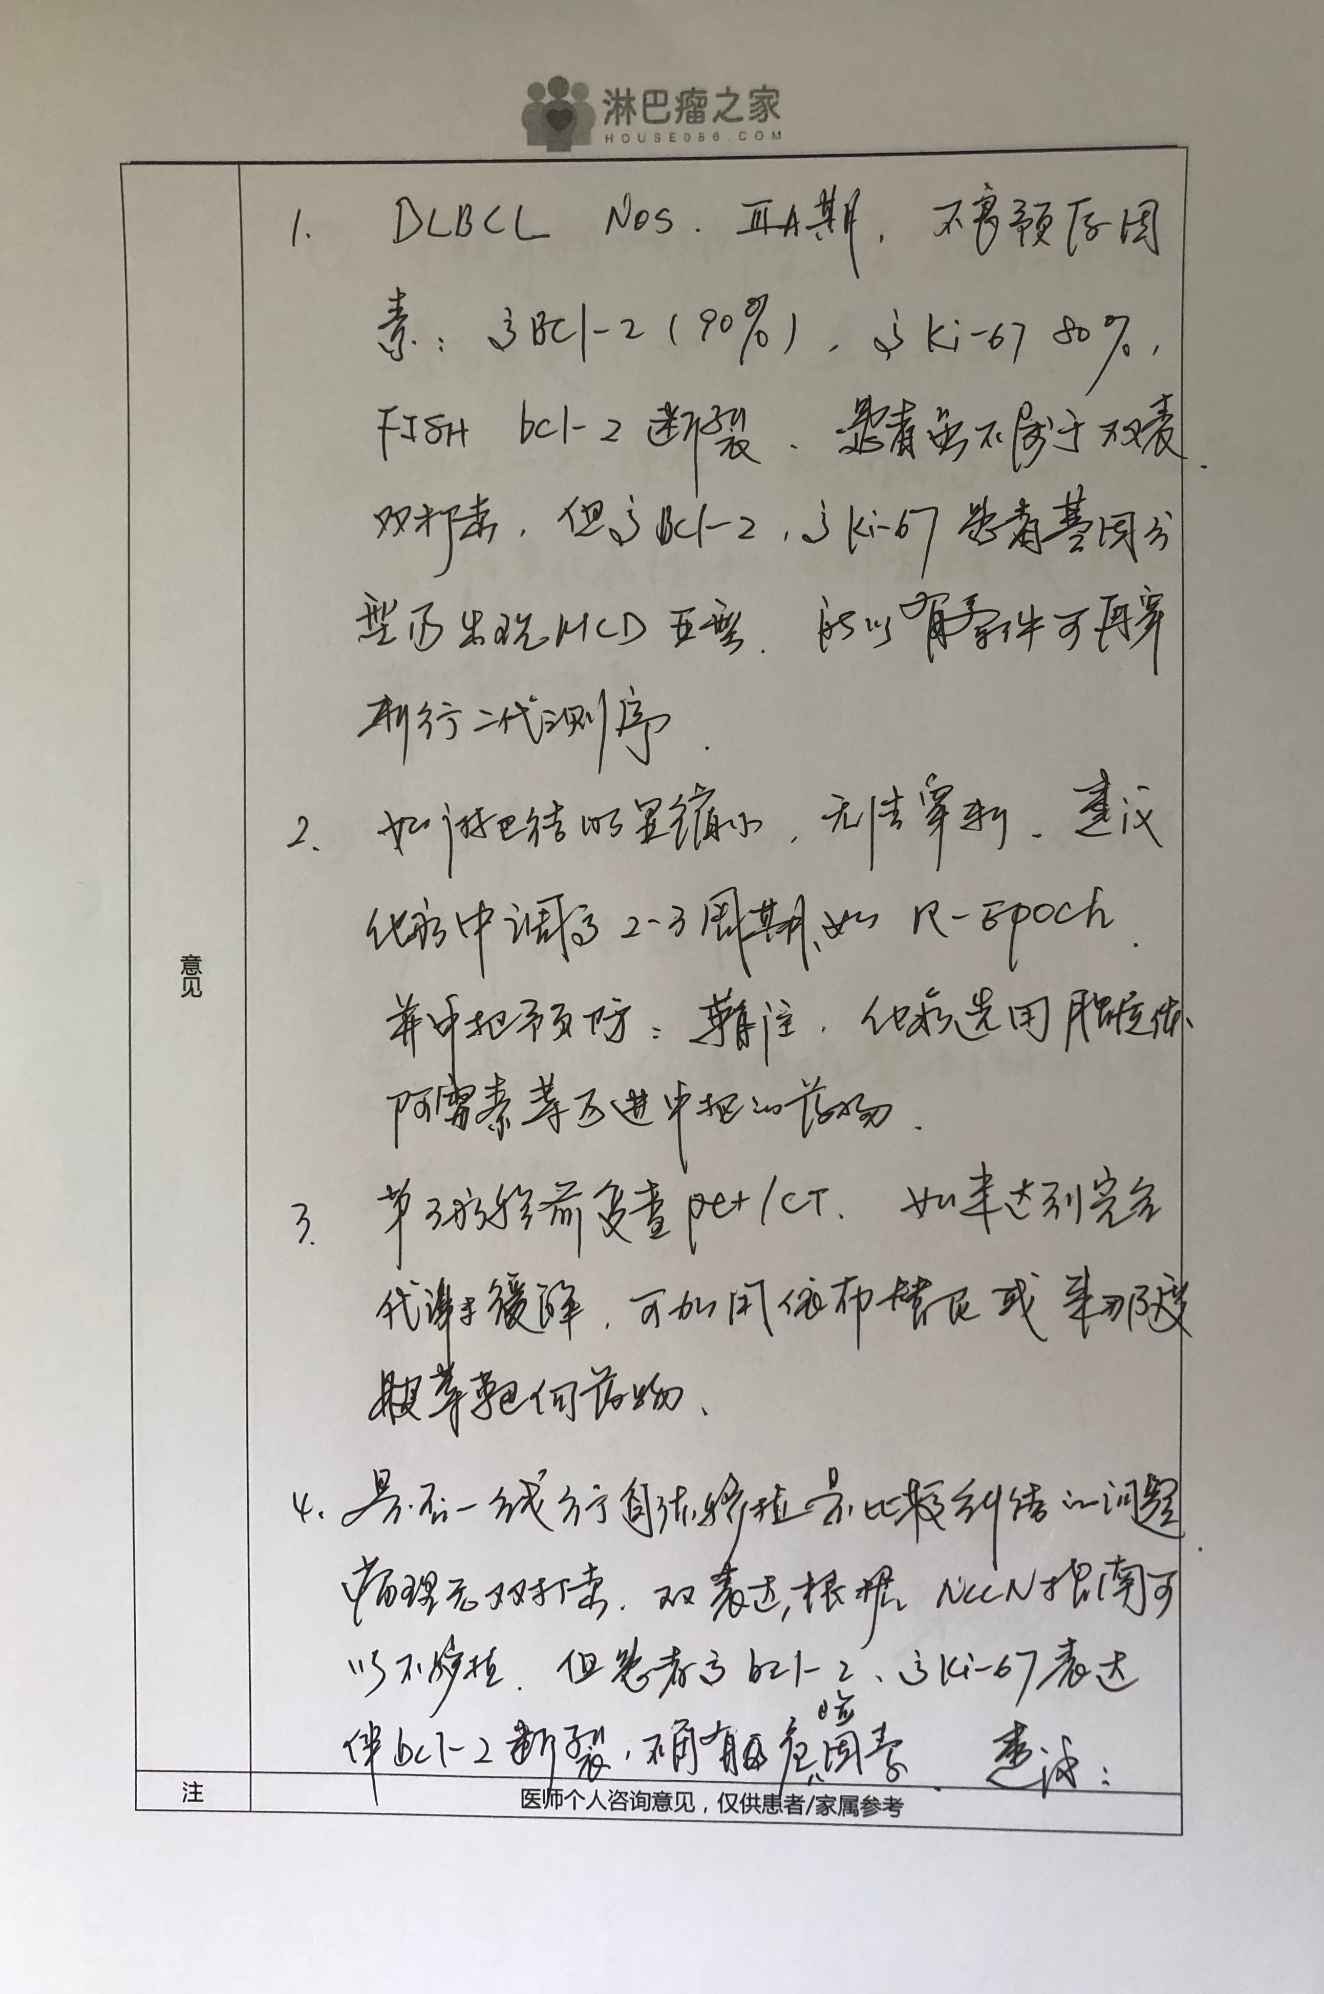 淋巴瘤之家
HOUSE086.COM
1. DLBCL NOS. ⅢA期, 不良预后因
素: 高BCl-2(90%), 高Ki-67 80%,
FISH bcl-2断裂、患者虽不属于双表、
双打击, 但高BCl-2, 高Ki-67患者基因分
型可出现MCD亚型. 所以有条件可再穿
刺行二代测序.
2、如淋巴结明显缩小, 无法穿刺、建议
化疗中调高2-3周期、如R-EPOCh.
并中枢预防: 鞘注, 化疗选用脂质体
阿霉素等可进中枢的药物.
3. 第3疗程前复查pet/CT. 如未达到完全
代谢缓解, 可加用依布替尼或来那度
胺等靶向药物、
4. 是否一线行自体移植是比较纠结的问题.
病理无双打击、双表达, 根据NCCN指南可
以不移植. 但患者高bcl-2、高Ki-67表达
伴bcl-2断裂, 有危险因素. 建议:
意见
注
医师个人咨询意见，仅供患者/家属参考